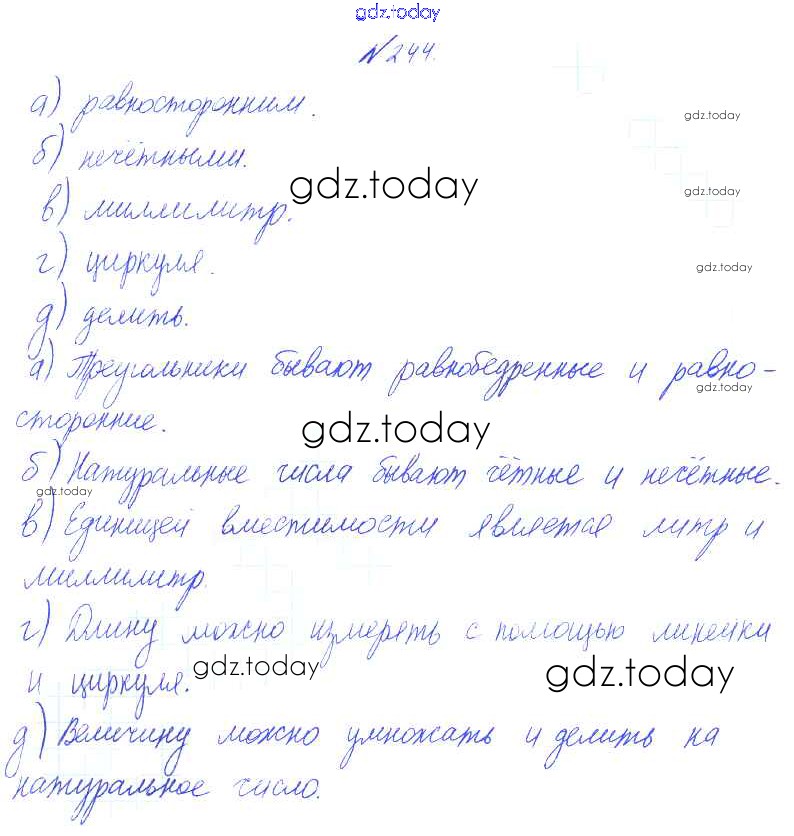 gdz.today
№244.
а) равносторонним.
gdz.today
б) нечётными.
gdz.today
gdz.today
в) миллилитр.
г) циркуля.
gdz.today
д) делить.
а) Треугольники бывают равнобедренные и равно-
gdz.today
сторонние.
gdz.today
б) Натуральные числа бывают чётные и нечётные.
gdz.today
в) Единицей вместимости является литр и
миллилитр.
г) Длину можно измерять с помощью линейки
и циркуля.
gdz.today
gdz.today
д) Величину можно умножать и делить на
натуральное число.